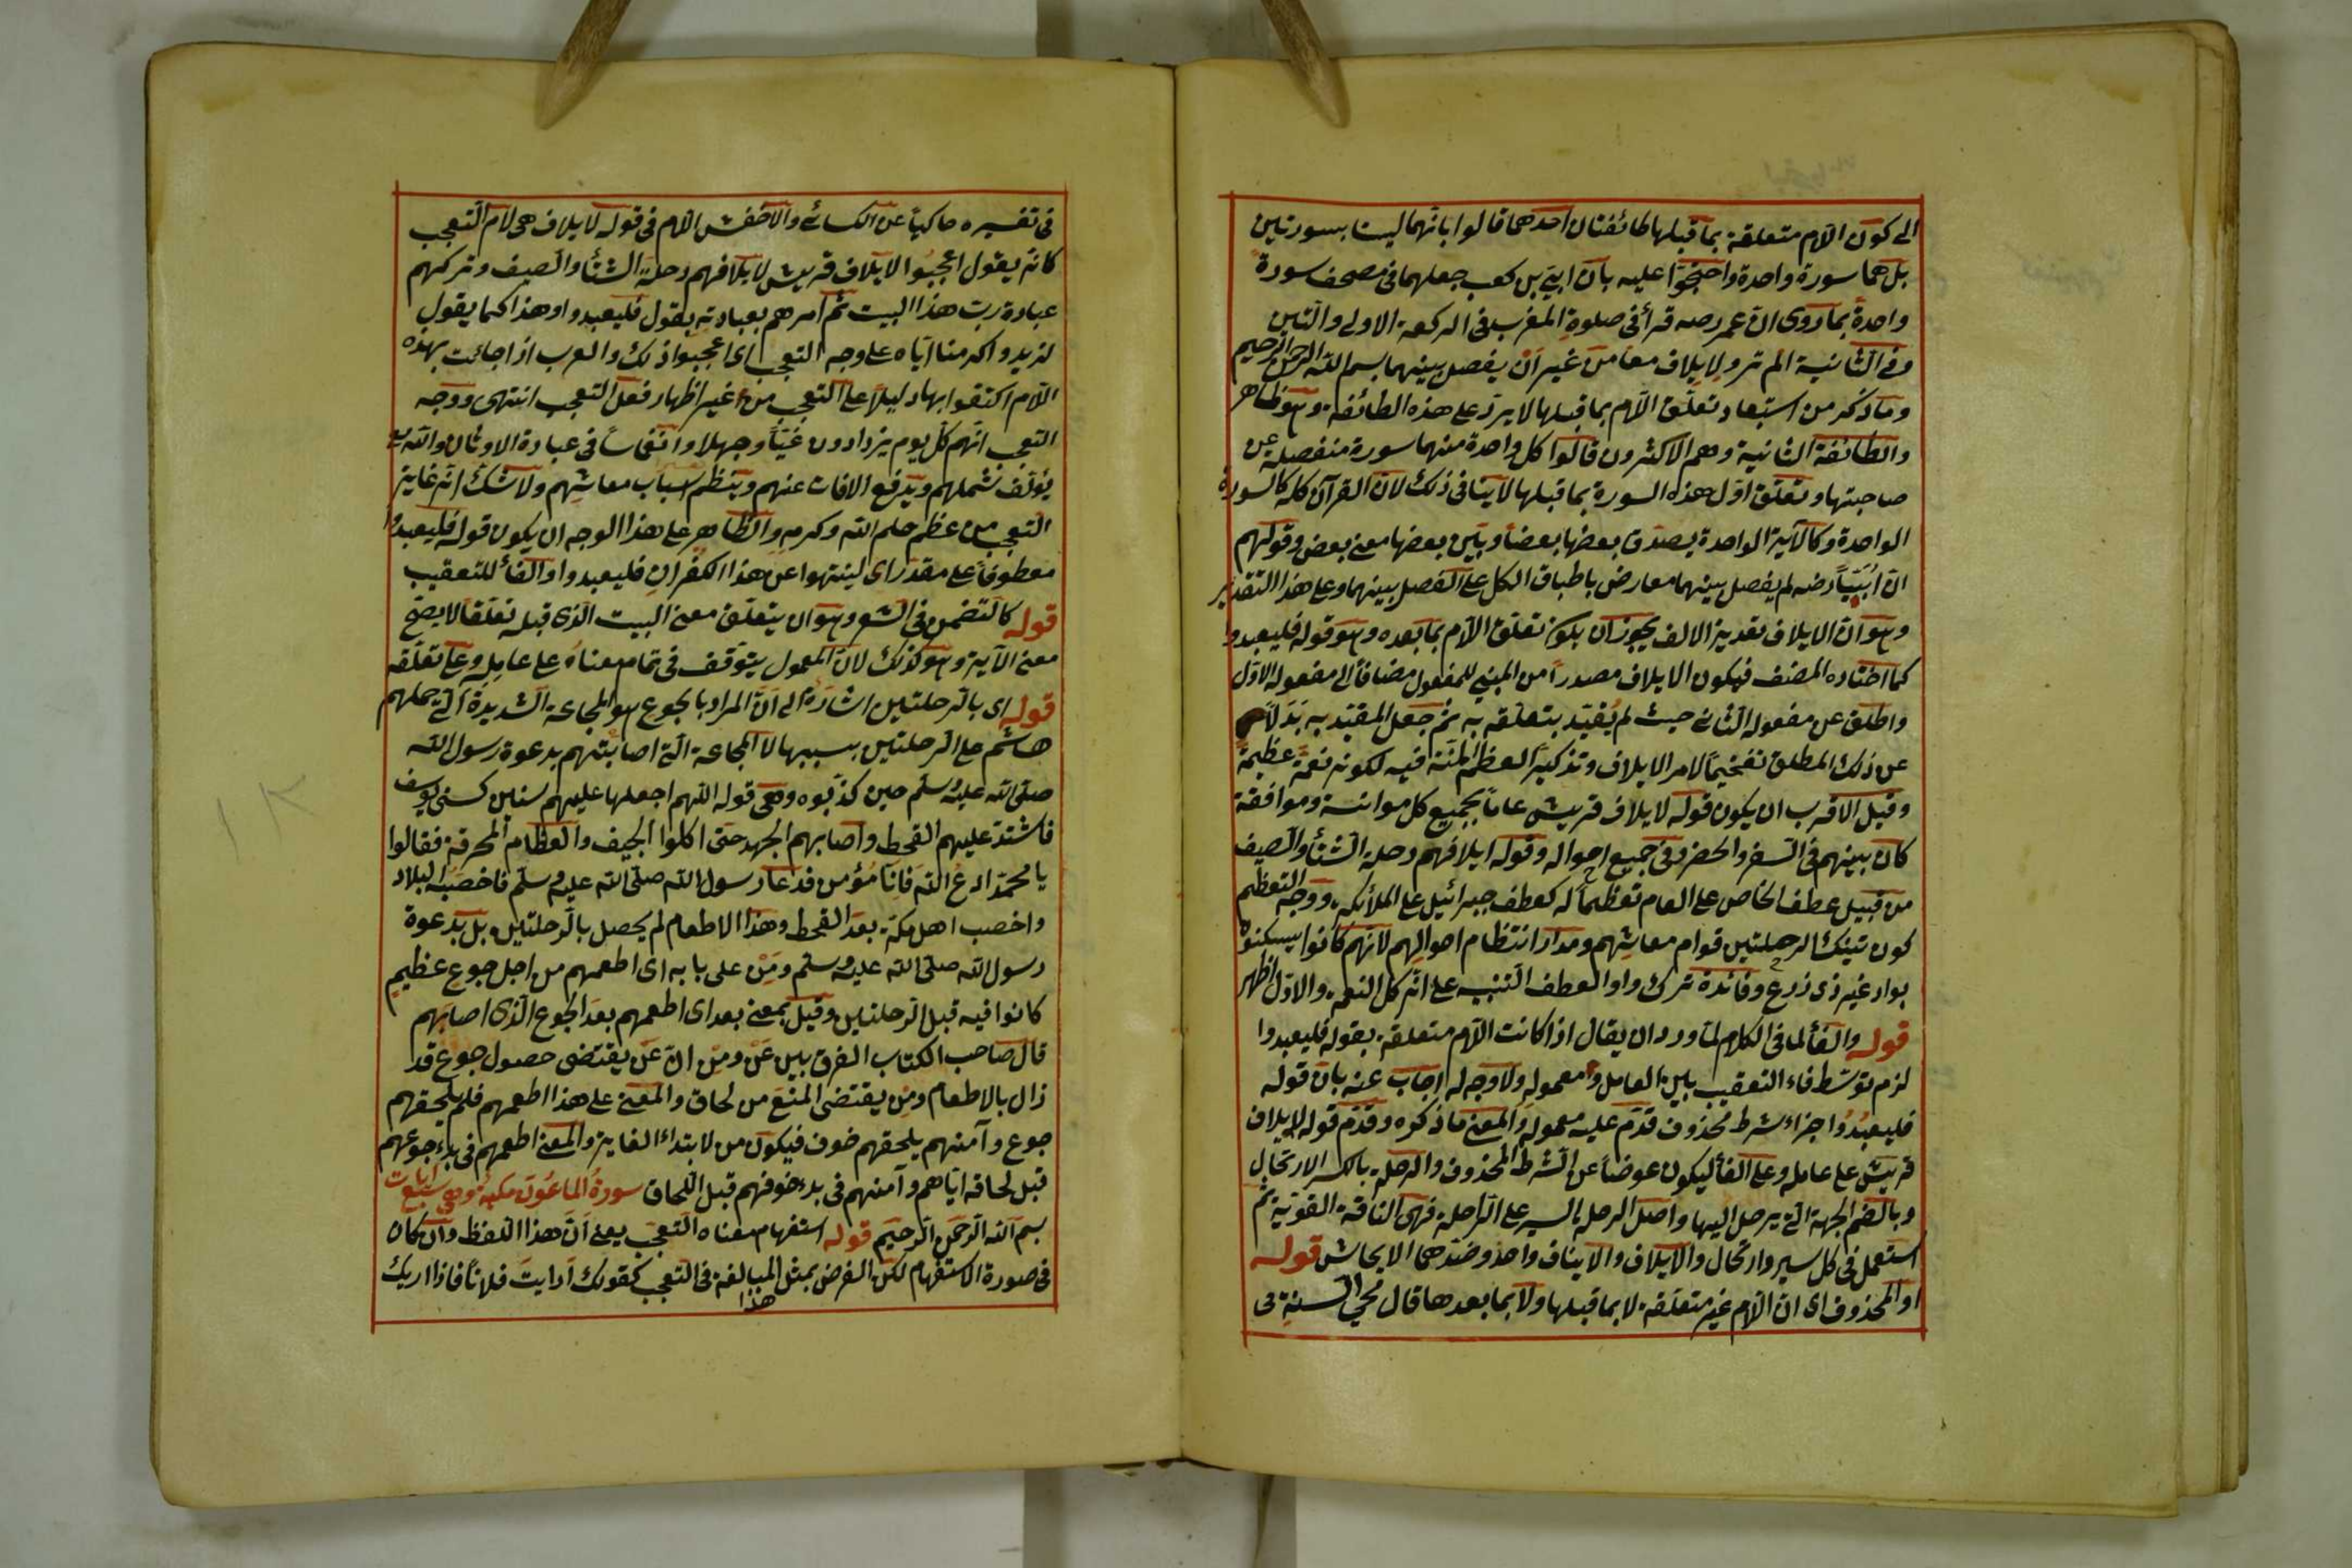 الى كون اللام متعلقة بما قبلها طائفتان احدهما قالوا بانهما ليستا بسورتين
بل هما سورة واحدة واحتجوا عليه بان ابي بن كعب جعلهما فى مصحف سورة
واحدة بما روى ان عمر رضه قرأ فى صلوة المغرب فى الركعة الاولى والتين
وفى الثانية الم تر ولايلاف معا من غير ان يفصل بينهما بسم الله الرحمن الرحيم
وما ذكر من استبعاد تعلق اللام بما قبلها لا يرد على هذه الطائفة وهو ظاهر
والطائفة الثانية وهم الاكثرون قالوا كل واحدة منهما سورة منفصلة عن
صاحبتها وتعلق اول هذه السورة بما قبلها لا ينافى ذلك لان القرآن كله كالسورة
الواحدة وكالآية الواحدة يصدق بعضها بعضا ويبين بعضها معنى بعض وقولهم
ان ابيا رضه لم يفصل بينهما معارض باطباق الكل على الفصل بينهما وعلى هذا التقدير
وهو ان الايلاف تعدية الالف يجوز ان يكون تعلق اللام بما بعده وهو قوله فليعبدوا
كما اختاره المصنف فيكون الايلاف مصدرا من المبنى للمفعول مضافا الى مفعوله الاول
واطلق عن مفعوله الثانى حيث لم يقيد بتعلقه به ثم جعل المقيد به بدلا
عن ذلك المطلق تفخيما لامر الايلاف وتذكيرا لعظم المنة فيه لكونه نعمة عظيمة
وقيل الاقرب ان يكون قوله لايلاف قريش عاما بجميع كل موانسة وموافقة
كان بينهم فى السفر والحضر وفى جميع احواله وقوله ايلافهم رحلة الشتأ والصيف
من قبيل عطف الخاص على العام تعظيما له كعطف جبرائيل على الملائكة ووجه التعظيم
كون تينك الرحلتين قوام معاشهم ومدار انتظام احوالهم لانهم كانوا يسكنون
بواد غير ذى زرع وفائدة ترك واو العطف التنبيه على انه كل النعمة والاول اظهر
قوله والفأ لما فى الكلام لما ورد ان يقال اذا كانت اللام متعلقة بقوله فليعبدوا
لزم توسط فاء التعقيب بين العامل ومعموله ولا وجه له اجاب عنه بان قوله
فليعبدوا جزاء شرط محذوف قدم عليه معموله والمعنى ما ذكره وقدم قوله لايلاف
قريش على عامله وعلى الفأ ليكون عوضا عن الشرط المحذوف والرحلة بالكسر الارتحال
وبالضم الجهة التى يرحل اليها واصل الرحلة السير على الراحلة فهى الناقة القوية ثم
استعمل فى كل سير وارتحال والايلاف والايناف واحد وضدهما الايحاش قوله
او المحذوف اى ان اللام غير متعلقة لا بما قبلها ولا بما بعدها قال محي السنة فى
فى تفسيره حاكيا عن الكسائى والاخفش اللام فى قوله لايلاف هى لام التعجب
كانه يقول اعجبوا لايلاف قريش لايلافهم رحلة الشتأ والصيف وتركهم
عبادة رب هذا البيت ثم امرهم بعبادته بقوله فليعبدوا وهذا كما يقول
لزيد واكرمنا اياه على وجه التعجب اى اعجبوا ذلك والعرب اذا جائت بهذه
اللام اكتفوا بها دليلا على التعجب من غير اظهار فعل التعجب انتهى ووجه
التعجب انهم كل يوم يزدادون غيا وجهلا وانغماسا فى عبادة الاوثان والله تعالى
يؤلف شملهم ويدفع الافات عنهم وينظم اسباب معاشهم ولا شك انه غاية
التعجب من عظم حلم الله وكرمه والظاهر على هذا الوجه ان يكون قوله فليعبدوا
معطوفا على مقدر اى لينتهوا عن هذا الكفران فليعبدوا والفأ للتعقيب
قوله كالتضمين فى الشعر وهو ان يتعلق معنى البيت الذى قبله تعلقا لا يصح
معنى الآية وهو كذلك لان المعمول يتوقف فى تمام معناه على عامله وعلى تعلقه
قوله اى بالرحلتين اشارة الى ان المراد بالجوع هو المجاعة الشديدة التى حملهم
هاشم على الرحلتين بسببها لا المجاعة التى اصابتهم بدعوة رسول الله
صلى الله عليه وسلم حين كذبوه وهى قوله اللهم اجعلها عليهم سنين كسنى يوسف
فاشتد عليهم القحط واصابهم الجهد حتى اكلوا الجيف والعظام المحرقة فقالوا
يا محمد ادع الله فانا مؤمن فدعا رسول الله صلى الله عليه وسلم فاخصبت البلاد
واخصب اهل مكة بعد القحط وهذا الاطعام لم يحصل بالرحلتين بل بدعوة
رسول الله صلى الله عليه وسلم ومن على بابه اى اطعمهم من اجل جوع عظيم
كانوا فيه قبل الرحلتين وقيل بمعنى بعد اى اطعمهم بعد الجوع الذى اصابهم
قال صاحب الكتاب الفرق بين عن ومن ان عن يقتضى حصول جوع قد
زال بالاطعام ومن يقتضى المنع من لحاق والمعنى على هذا اطعمهم فلم يلحقهم
جوع وآمنهم يلحقهم خوف فيكون من لابتداء الغاية والمعنى اطعمهم فى بدء جوعهم
قبل لحاقه اياهم وآمنهم فى بدء خوفهم قبل اللحاق سورة الماعون مكية وهى سبع آيات
بسم الله الرحمن الرحيم قوله استفهام معناه التعجب يعنى ان هذا اللفظ وان كان
فى صورة الاستفهام لكن الغرض بمثل هذا المبالغة فى التعجب كقولك أرايت فلانا فاذا اريك